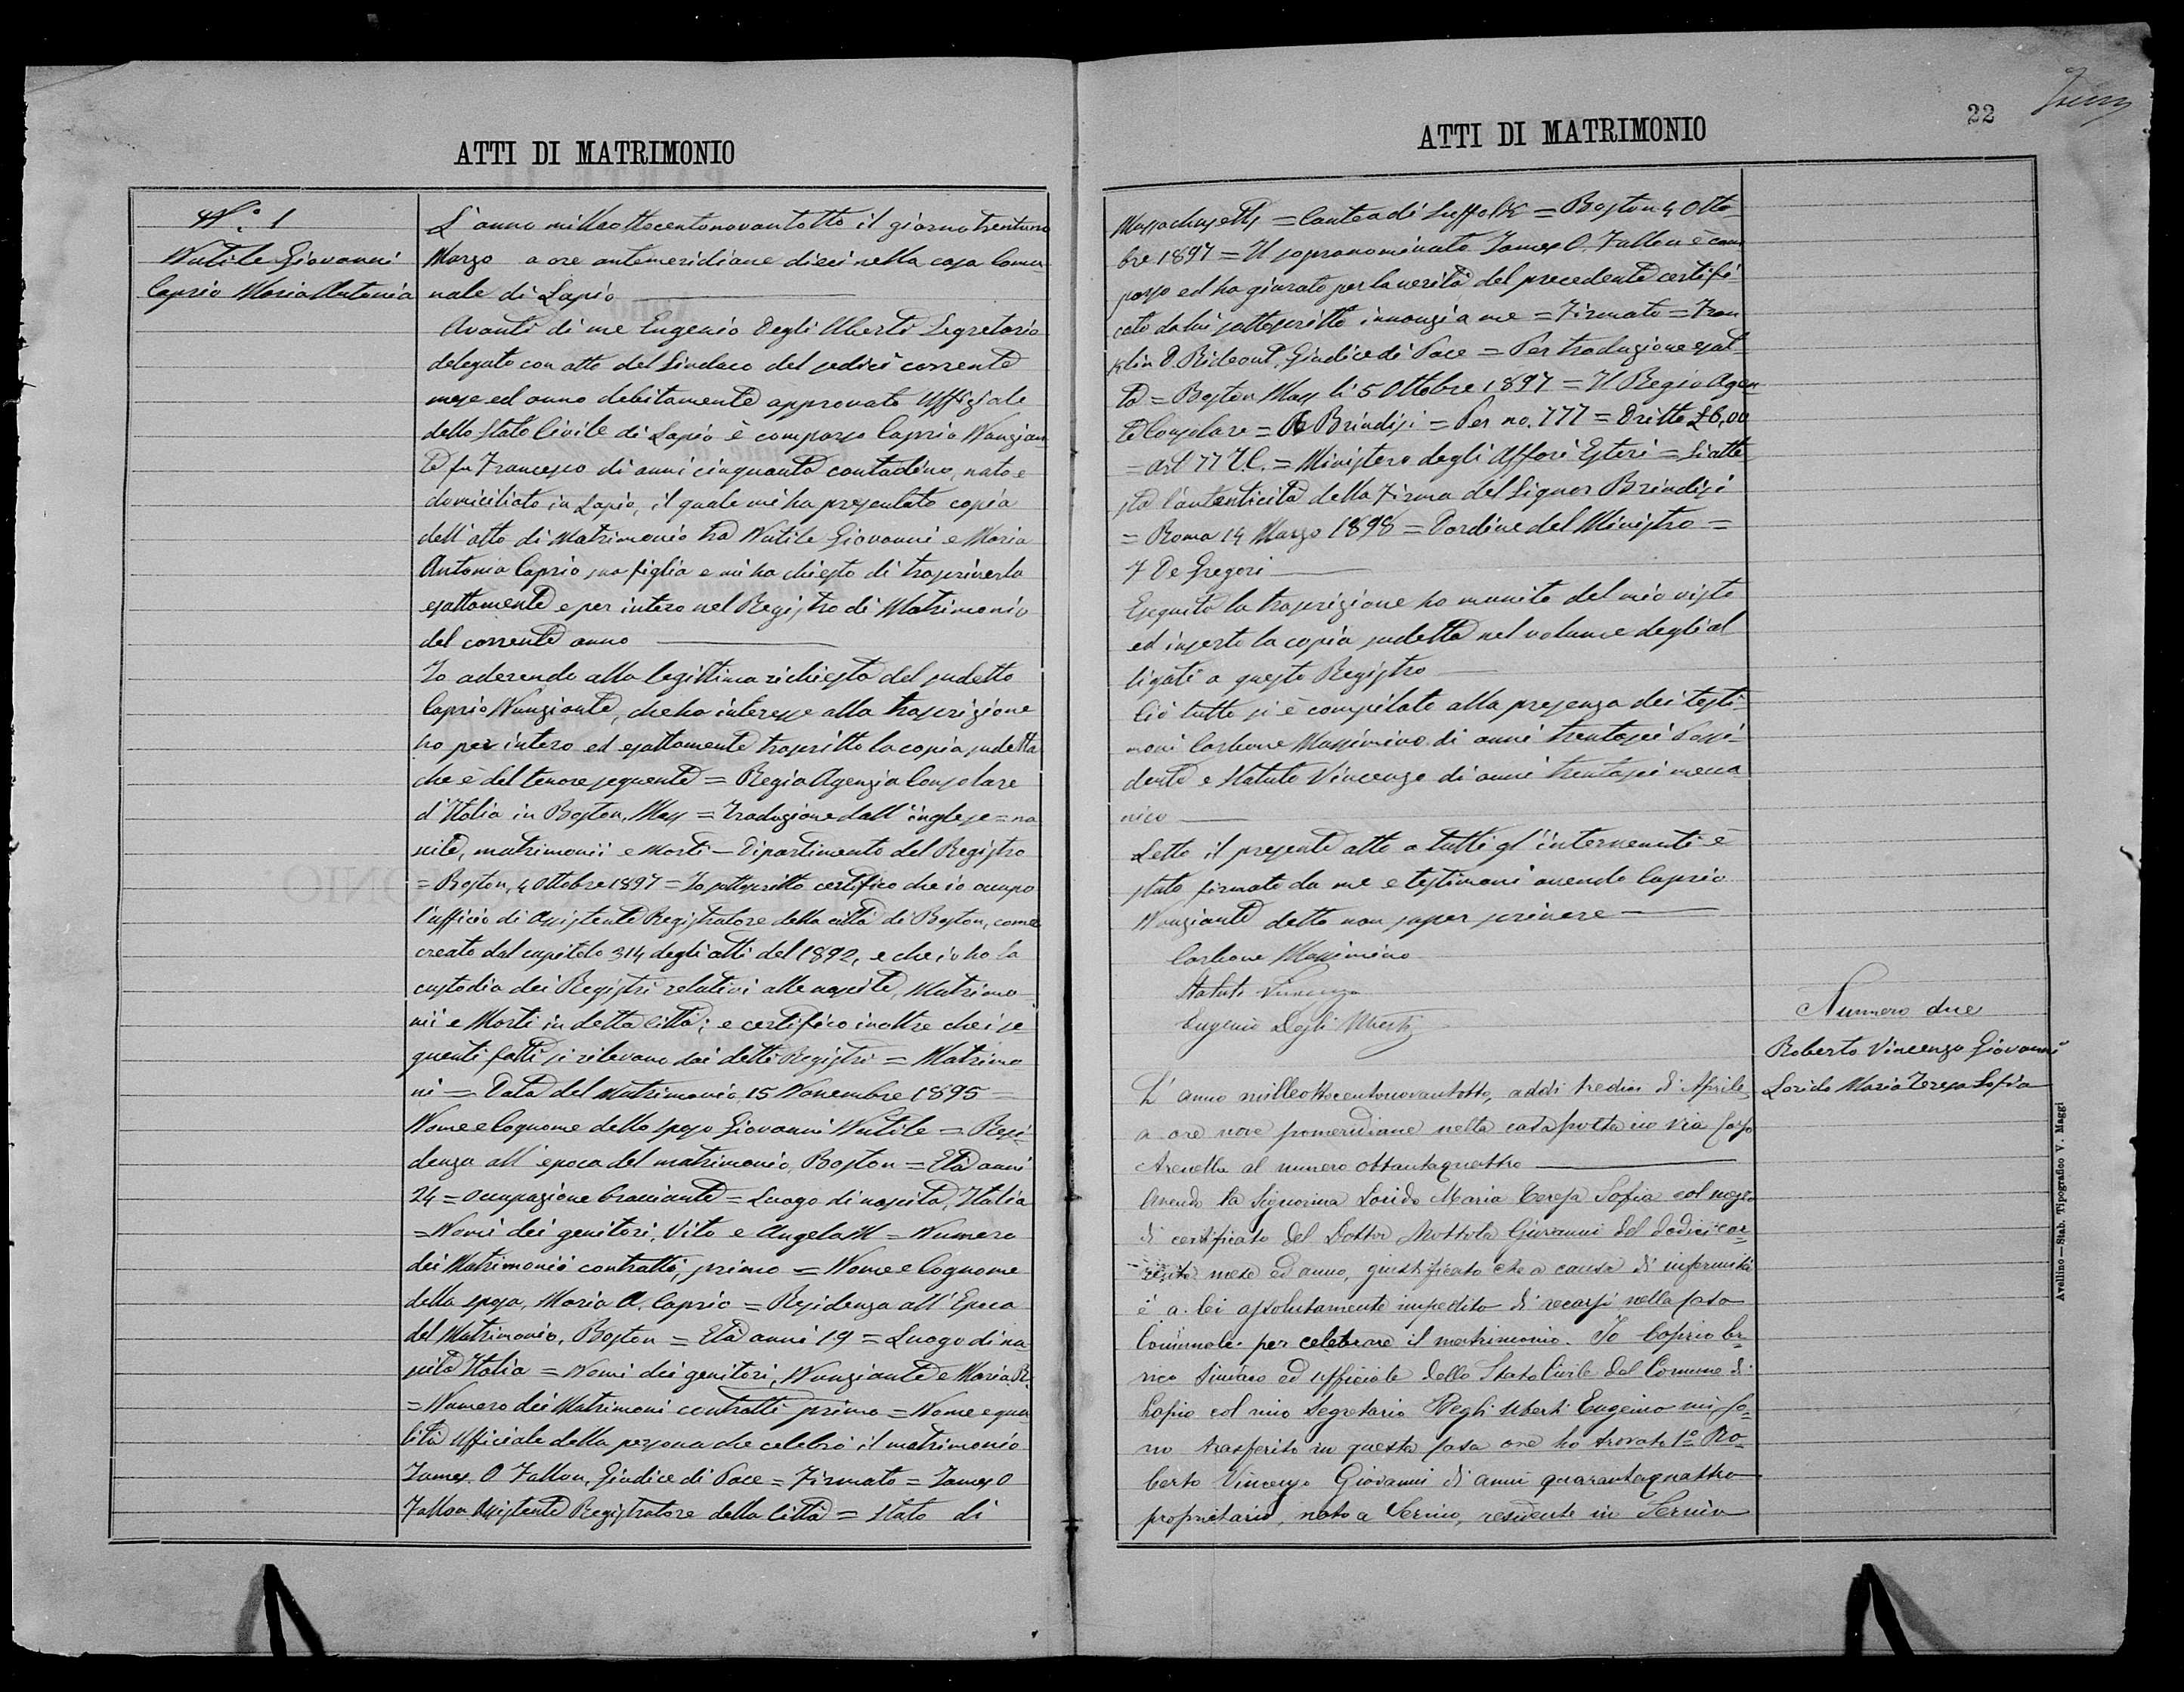 ATTI DI MATRIMONIO
N.° 1
Nutile Giovanni
Caprio Maria Antonia
L'anno milleottocentonovantotto il giorno trentuno
Marzo a ore antemeridiane dieci nella casa Comu
nale di Lapio
Avanti di me Eugenio Degli Uberti Segretario
delegato con atto del Sindaco del sedici corrente
mese ed anno debitamente approvato Uffiziale
dello Stato Civile di Lapio è comparso Caprio Nunzian
te fu Francesco di anni cinquanta contadino, nato e
domiciliato in Lapio, il quale mi ha presentato copia
dell'atto di Matrimonio tra Nutile Giovanni e Maria
Antonia Caprio sua figlia e mi ha chiesto di trascriverla
esattamente e per intero nel Registro di Matrimonio
del corrente anno
Io aderendo alla legittima richiesta del sudetto
Caprio Nunziante, che ha interesse alla trascrizione
ho per intero ed esattamente trascritto la copia sudetta
che è del tenore seguente = Regia Agenzia Consolare
d'Italia in Boston, Mass = Traduzione dall'inglese = na
scite, matrimonii e Morti - Dipartimento del Registro
= Boston, 4 Ottobre 1897 = Io sottoscritto certifico che io occupo
l'ufficio di Assistente Registratore della città di Boston, come
creato dal capitolo 314 degli atti del 1892, e che io ho la
custodia dei Registri relativi alle nascite, Matrimo
nii e Morti in detta Città; e certifico inoltre che i se
guenti fatti si rilevano dai detti Registri = Matrimo
ni = Data del Matrimonio 15 Novembre 1895 =
Nome e Cognome dello sposo Giovanni Nutile = Resi
denza all'epoca del matrimonio, Boston = Età anni
24 = Occupazione bracciante = Luogo di nascita, Italia
= Nomi dei genitori, Vito e Angela M = Numero
dei Matrimonii contratti, primo = Nome e Cognome
della sposa, Maria A. Caprio = Residenza all'Epoca
del Matrimonio, Boston = Età anni 19 = Luogo di na
scita Italia = Nomi dei genitori, Nunziante e Maria R.
= Numero dei Matrimoni contratti primo = Nome e qua
lità Ufficiale della persona che celebrò il matrimonio
James. O. Fallon, Giudice di Pace = Firmato = James O
Fallon Assistente Registratore della Città = Stato di
ATTI DI MATRIMONIO
22
Massachusetts = Contea di Suffolk = Boston 4 Otto
bre 1897 = Il sopranominato James O. Fallon è com
parso ed ha giurato per la verità del precedente certifi
cato da lui sottoscritto innanzi a me = Firmato = Fran
klin D. Rideout Giudice di Pace = Per traduzione esat
ta = Boston Mass li 5 Ottobre 1897 = Il Regio Agen
te Consolare = Brindisi = Per no. 777 = Dritto £ 6,00
= art 77 T.C. = Ministero degli Affari Esteri = Si atte
sta l'autenticità della Firma del Signor Brindisi
= Roma 14 Marzo 1898 = D'ordine del Ministro =
F De Gregori
Eseguita la trascrizione ho munito del mio visto
ed inserto la copia sudetta nel volume degli al
ligati a questo Registro
Ciò tutto si è compilato alla presenza dei testi
moni Carbone Massimino di anni trentasei Possi
dente e Statuto Vincenzo di anni trentasei mecca
nico
Letto il presente atto a tutti gl'intervenuti è
stato firmato da me e testimoni avendo Caprio
Nunziante detto non saper scrivere
Carbone Massimino
Statuto Vincenzo
Eugenio Degli Uberti
Numero due
Roberto Vincenzo Giovanni
Lorido Maria Teresa Sofia
L'anno milleottocentonovantotto, addì tredici di Aprile
a ore nove pomeridiane nella casa posta in via Corso
Arenella al numero ottantaquattro
Avendo la Signorina Lorido Maria Teresa Sofia col mezzo
di certificato del Dottor Mottola Giovanni del dodici cor=
rente mese ed anno, giustificato che a causa di infermità
è a lei assolutamente impedito di recarsi nella Casa
Comunale per celebrare il matrimonio. Io Caprio Er
rico Sindaco ed Ufficiale dello Stato Civile del Comune di
Lapio col mio Segretario Degli Uberti Eugenio mi so=
no trasferito in questa casa ove ho trovato 1° Ro=
berto Vincenzo Giovanni di anni quarantaquattro
proprietario, nato a Sernio, residente in Sernio
Avellino—Stab. Tipografico V. Maggi